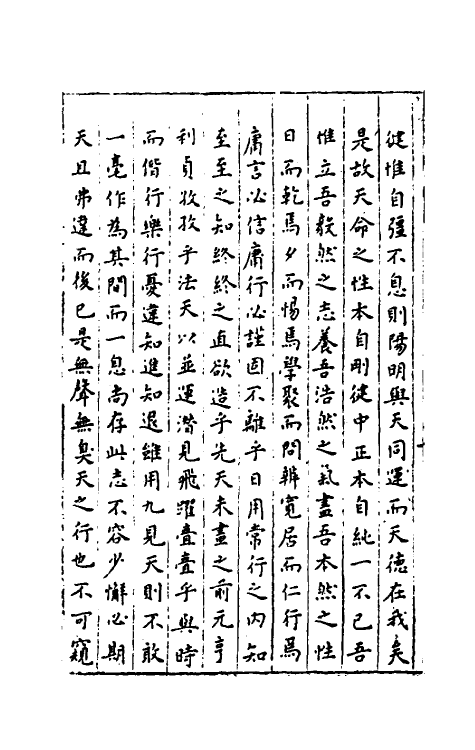 健惟自彊不息則陽明與天同運而天德在我矣
是故天命之性本自剛健中正本自純一不已吾
惟立吾毅然之志養吾浩然之氣盡吾本然之性
日而乾焉夕而惕焉學聚而問辨寬居而仁行焉
庸言必信庸行必謹固不離乎日用常行之內知
至至之知終終之直欲造乎先天未畫之前元亨
利貞孜孜乎法天以並運潛見飛躍亹亹乎與時
而偕行樂行憂違知進知退雖用九見天則不敢
一毫作為其間而一息尚存此志不容少懈必期
天且弗違而後已是無聲無臭天之行也不可窺